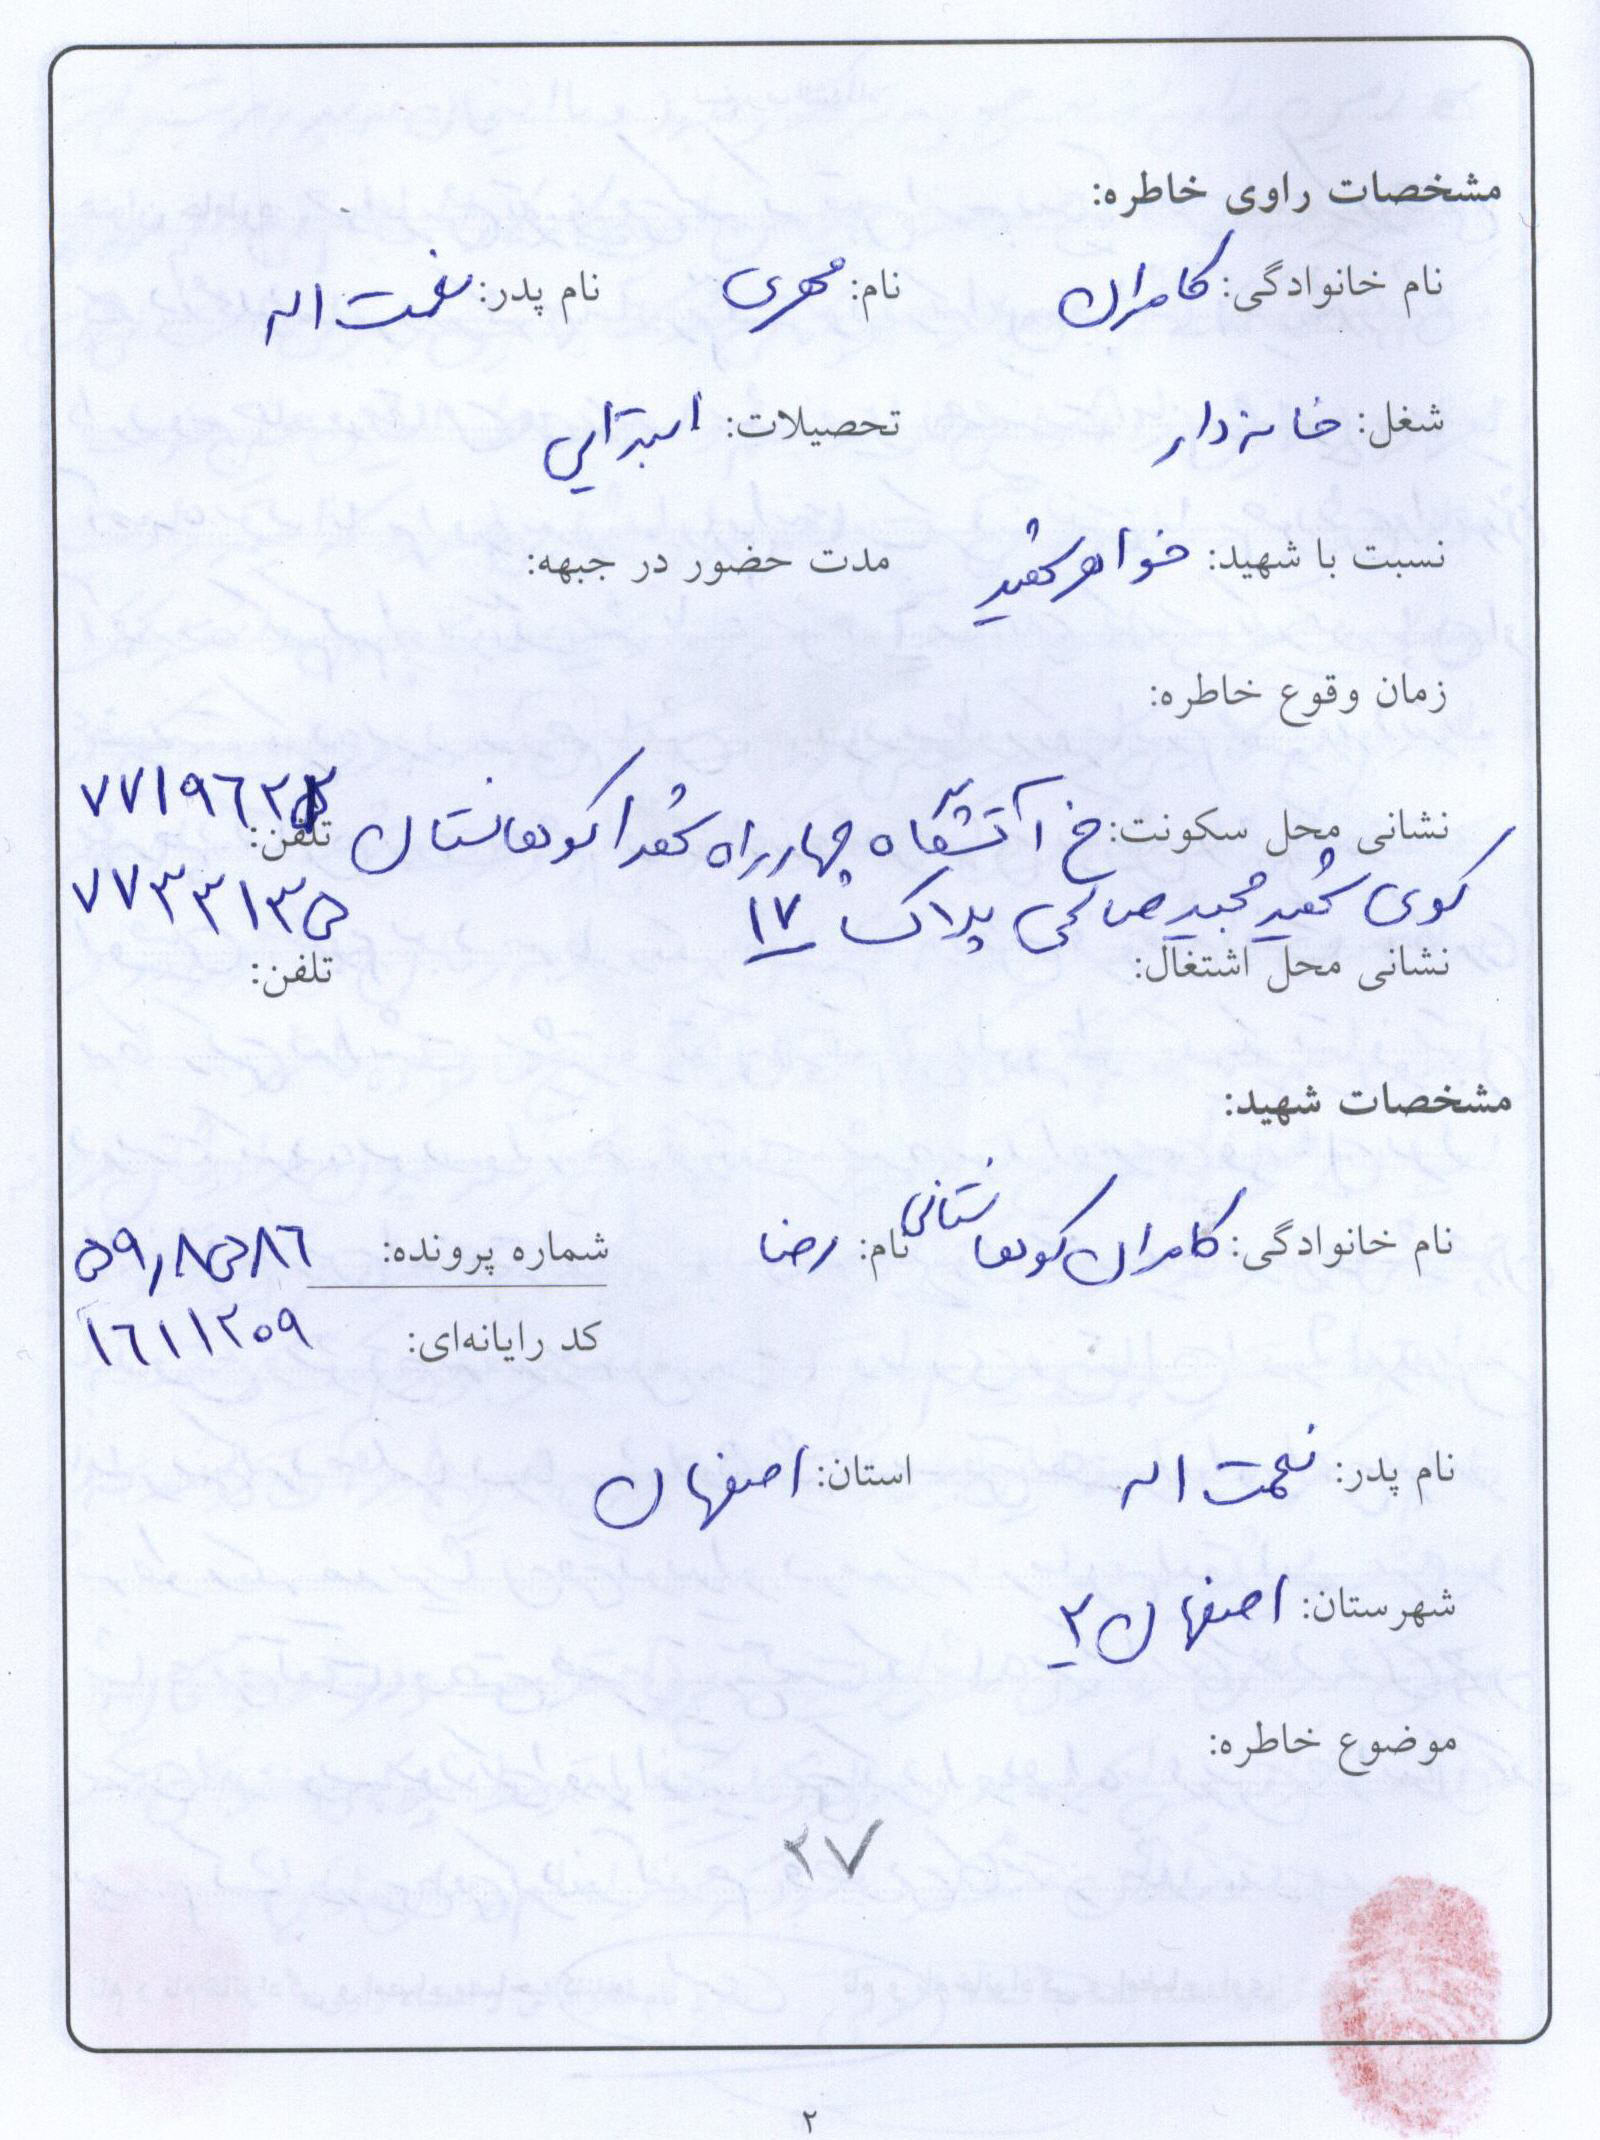 مشخصات راوی خاطره:
نام خانوادگی: کامران نام: مهری نام پدر: نعمت اله
شغل: خانه دار تحصیلات: ابتدایی
نسبت با شهید: خواهر شهید مدت حضور در جبهه:
زمان وقوع خاطره:
نشانی محل سکونت: خ آتشگاه چهارراه شهدا کوهانستان تلفن: ۷۷۱۹۶۲۲
کوی شهید مجید صالحی پلاک ۱۷ ۷۷۳۳۱۳۵
نشانی محل اشتغال: تلفن:
مشخصات شهید:
نام خانوادگی: کامران کوهانستانی نام: رضا شماره پرونده: ۵۹٫۸۵۸۶
کد رایانه‌ای: ۱۶۱۱۲۰۹
نام پدر: نعمت اله استان: اصفهان
شهرستان: اصفهان ۲
موضوع خاطره:
۲۷
۲